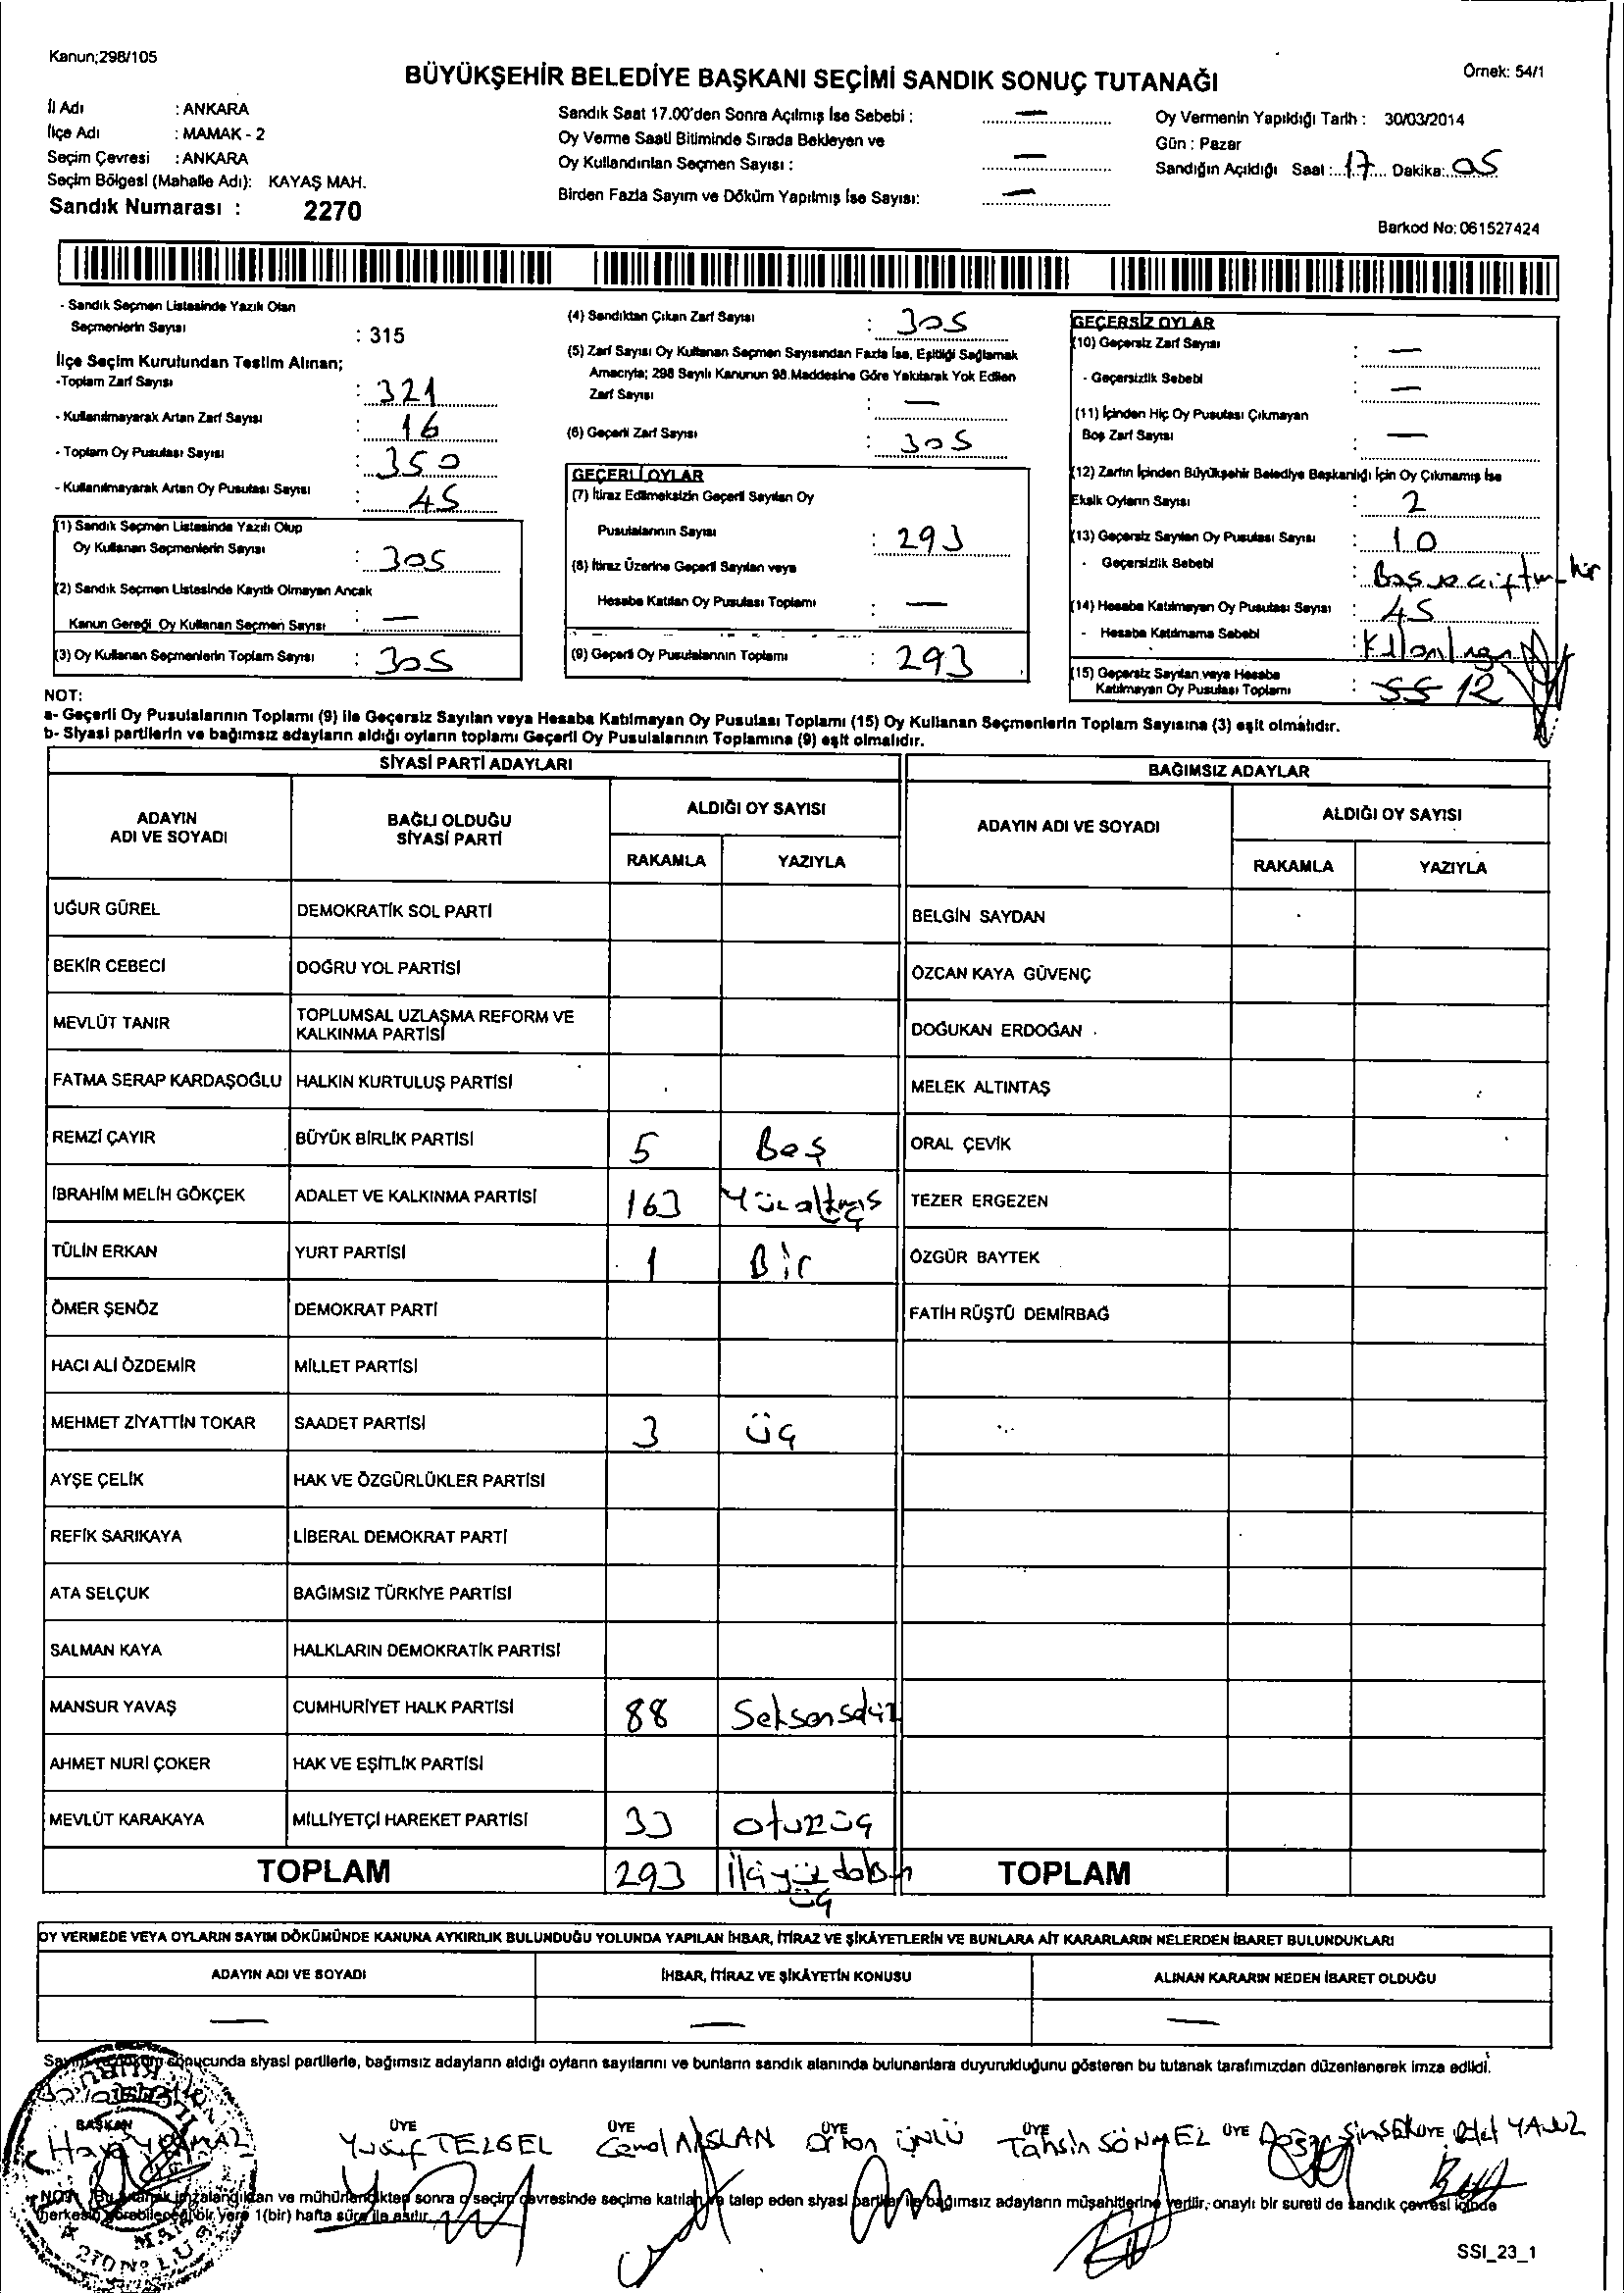 Kanun;298/105
BÜYÜKŞEHİR BELEDİYE BAŞKANI SEÇİMİ SANDIK SONUÇ TUTANAĞI
Örnek: 54/1
İl Adı : ANKARA
İlçe Adı : MAMAK - 2
Seçim Çevresi : ANKARA
Seçim Bölgesi (Mahalle Adı): KAYAŞ MAH.
Sandık Numarası : 2270
Sandık Saat 17.00'den Sonra Açılmış İse Sebebi : —
Oy Verme Saati Bitiminde Sırada Bekleyen ve
Oy Kullandırılan Seçmen Sayısı : —
Birden Fazla Sayım ve Döküm Yapılmış İse Sayısı: —
Oy Vermenin Yapıldığı Tarih : 30/03/2014
Gün : Pazar
Sandığın Açıldığı Saat : 17 Dakika: 05
Barkod No: 061527424
- Sandık Seçmen Listesinde Yazılı Olan
Seçmenlerin Sayısı : 315
İlçe Seçim Kurulundan Teslim Alınan;
-Toplam Zarf Sayısı : 321
- Kullanılmayarak Artan Zarf Sayısı : 16
- Toplam Oy Pusulası Sayısı : 350
- Kullanılmayarak Artan Oy Pusulası Sayısı : 45
(1) Sandık Seçmen Listesinde Yazılı Olup
Oy Kullanan Seçmenlerin Sayısı : 305
(2) Sandık Seçmen Listesinde Kayıtlı Olmayan Ancak
Kanun Gereği Oy Kullanan Seçmen Sayısı : —
(3) Oy Kullanan Seçmenlerin Toplam Sayısı : 305
(4) Sandıktan Çıkan Zarf Sayısı : 305
(5) Zarf Sayısı Oy Kullanan Seçmen Sayısından Fazla İse, Eşitliği Sağlamak
Amacıyla; 298 Sayılı Kanunun 98.Maddesine Göre Yakılarak Yok Edilen
Zarf Sayısı : —
(6) Geçerli Zarf Sayısı : 305
GEÇERLİ OYLAR
(7) İtiraz Edilmeksizin Geçerli Sayılan Oy
Pusulalarının Sayısı : 293
(8) İtiraz Üzerine Geçerli Sayılan veya
Hesaba Katılan Oy Pusulası Toplamı : —
(9) Geçerli Oy Pusulalarının Toplamı : 293
GEÇERSİZ OYLAR
(10) Geçersiz Zarf Sayısı : —
- Geçersizlik Sebebi : —
(11) İçinden Hiç Oy Pusulası Çıkmayan
Boş Zarf Sayısı : —
(12) Zarfın İçinden Büyükşehir Belediye Başkanlığı İçin Oy Çıkmamış İse
Eksik Oyların Sayısı : 2
(13) Geçersiz Sayılan Oy Pusulası Sayısı : 10
- Geçersizlik Sebebi :
(14) Hesaba Katılmayan Oy Pusulası Sayısı : 45
- Hesaba Katılmama Sebebi :
(15) Geçersiz Sayılan veya Hesaba
Katılmayan Oy Pusulası Toplamı : 55 12
NOT:
a- Geçerli Oy Pusulalarının Toplamı (9) ile Geçersiz Sayılan veya Hesaba Katılmayan Oy Pusulası Toplamı (15) Oy Kullanan Seçmenlerin Toplam Sayısına (3) eşit olmalıdır.
b- Siyasi partilerin ve bağımsız adayların aldığı oyların toplamı Geçerli Oy Pusulalarının Toplamına (9) eşit olmalıdır.
SİYASİ PARTİ ADAYLARI
BAĞIMSIZ ADAYLAR
ADAYIN ADI VE SOYADI
BAĞLI OLDUĞU SİYASİ PARTİ
ALDIĞI OY SAYISI
RAKAMLA YAZIYLA
ADAYIN ADI VE SOYADI
ALDIĞI OY SAYISI
RAKAMLA YAZIYLA
UĞUR GÜREL DEMOKRATİK SOL PARTİ BELGİN SAYDAN
BEKİR CEBECİ DOĞRU YOL PARTİSİ ÖZCAN KAYA GÜVENÇ
MEVLÜT TANIR TOPLUMSAL UZLAŞMA REFORM VE KALKINMA PARTİSİ DOĞUKAN ERDOĞAN
FATMA SERAP KARDAŞOĞLU HALKIN KURTULUŞ PARTİSİ MELEK ALTINTAŞ
REMZİ ÇAYIR BÜYÜK BİRLİK PARTİSİ 5 Beş ORAL ÇEVİK
İBRAHİM MELİH GÖKÇEK ADALET VE KALKINMA PARTİSİ 163 Yüzaltmış üç TEZER ERGEZEN
TÜLİN ERKAN YURT PARTİSİ 1 Bir ÖZGÜR BAYTEK
ÖMER ŞENÖZ DEMOKRAT PARTİ FATİH RÜŞTÜ DEMİRBAĞ
HACI ALİ ÖZDEMİR MİLLET PARTİSİ
MEHMET ZİYATTİN TOKAR SAADET PARTİSİ 3 üç
AYŞE ÇELİK HAK VE ÖZGÜRLÜKLER PARTİSİ
REFİK SARIKAYA LİBERAL DEMOKRAT PARTİ
ATA SELÇUK BAĞIMSIZ TÜRKİYE PARTİSİ
SALMAN KAYA HALKLARIN DEMOKRATİK PARTİSİ
MANSUR YAVAŞ CUMHURİYET HALK PARTİSİ 88 Seksensekiz
AHMET NURİ ÇOKER HAK VE EŞİTLİK PARTİSİ
MEVLÜT KARAKAYA MİLLİYETÇİ HAREKET PARTİSİ 33 otuzüç
TOPLAM 293 İkiyüzdoksan üç TOPLAM
OY VERMEDE VEYA OYLARIN SAYIM DÖKÜMÜNDE KANUNA AYKIRILIK BULUNDUĞU YOLUNDA YAPILAN İHBAR, İTİRAZ VE ŞİKÂYETLERİN VE BUNLARA AİT KARARLARIN NELERDEN İBARET BULUNDUKLARI
ADAYIN ADI VE SOYADI İHBAR, İTİRAZ VE ŞİKÂYETİN KONUSU ALINAN KARARIN NEDEN İBARET OLDUĞU
— — —
Sayım ve döküm sonucunda siyasi partilerle, bağımsız adayların aldığı oyların sayılarını ve bunların sandık alanında bulunanlara duyurulduğunu gösteren bu tutanak tarafımızdan düzenlenerek imza edildi.
BAŞKAN ÜYE ÜYE ÜYE ÜYE ÜYE ÜYE
Yusuf TELGEL Cemal ARSLAN Orhan ÜNLÜ Tahsin SÖNMEZ
NOT: Bu tutanak imzalandıktan ve mühürlendikten sonra o seçim çevresinde seçime katılan ve talep eden siyasi partiler ile bağımsız adayların müşahitlerine verilir, onaylı bir sureti de sandık çevresi içinde
herkesin görebileceği bir yere 1(bir) hafta süre ile asılır.
SSI_23_1